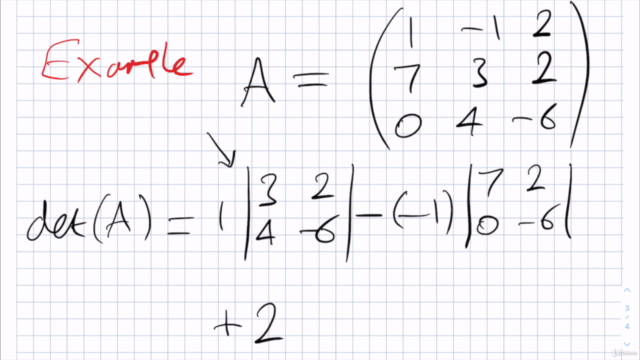 Example
A = ( 1 -1 2
7 3 2
0 4 -6 )
det(A) = 1 | 3 2 | - (-1) | 7 2 |
| 4 -6 | | 0 -6 |
+ 2
3/4